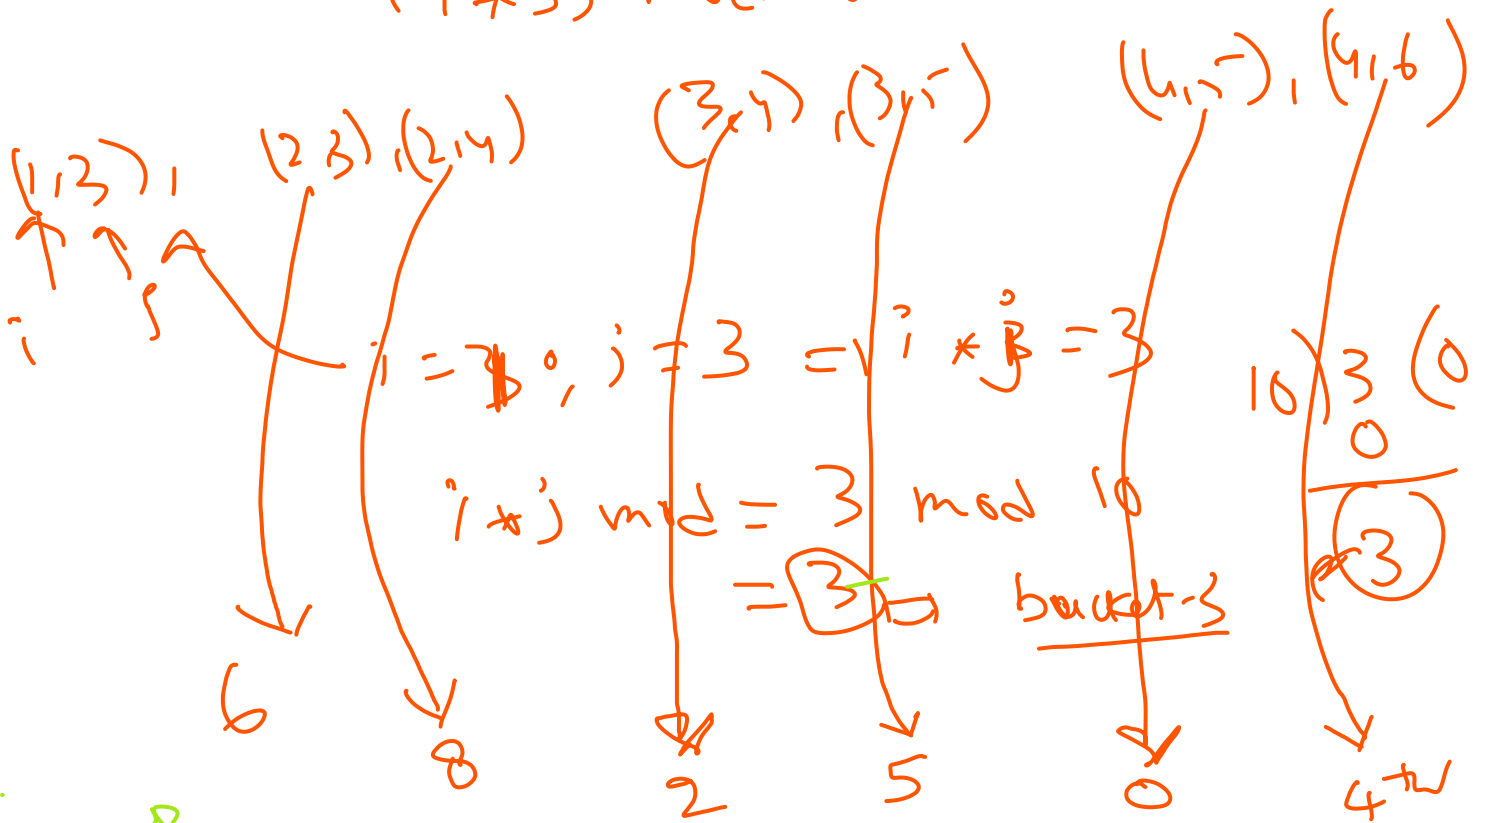 (1,3), (2 3), (2,4) (3,4), (3,5) (4,5), (4,6)
i j
i = 1; j = 3 = i * j = 3
10) 3 (0
0
3
i * j mod = 3 mod 10
= 3 bucket-3
6 8 2 5 0 4th